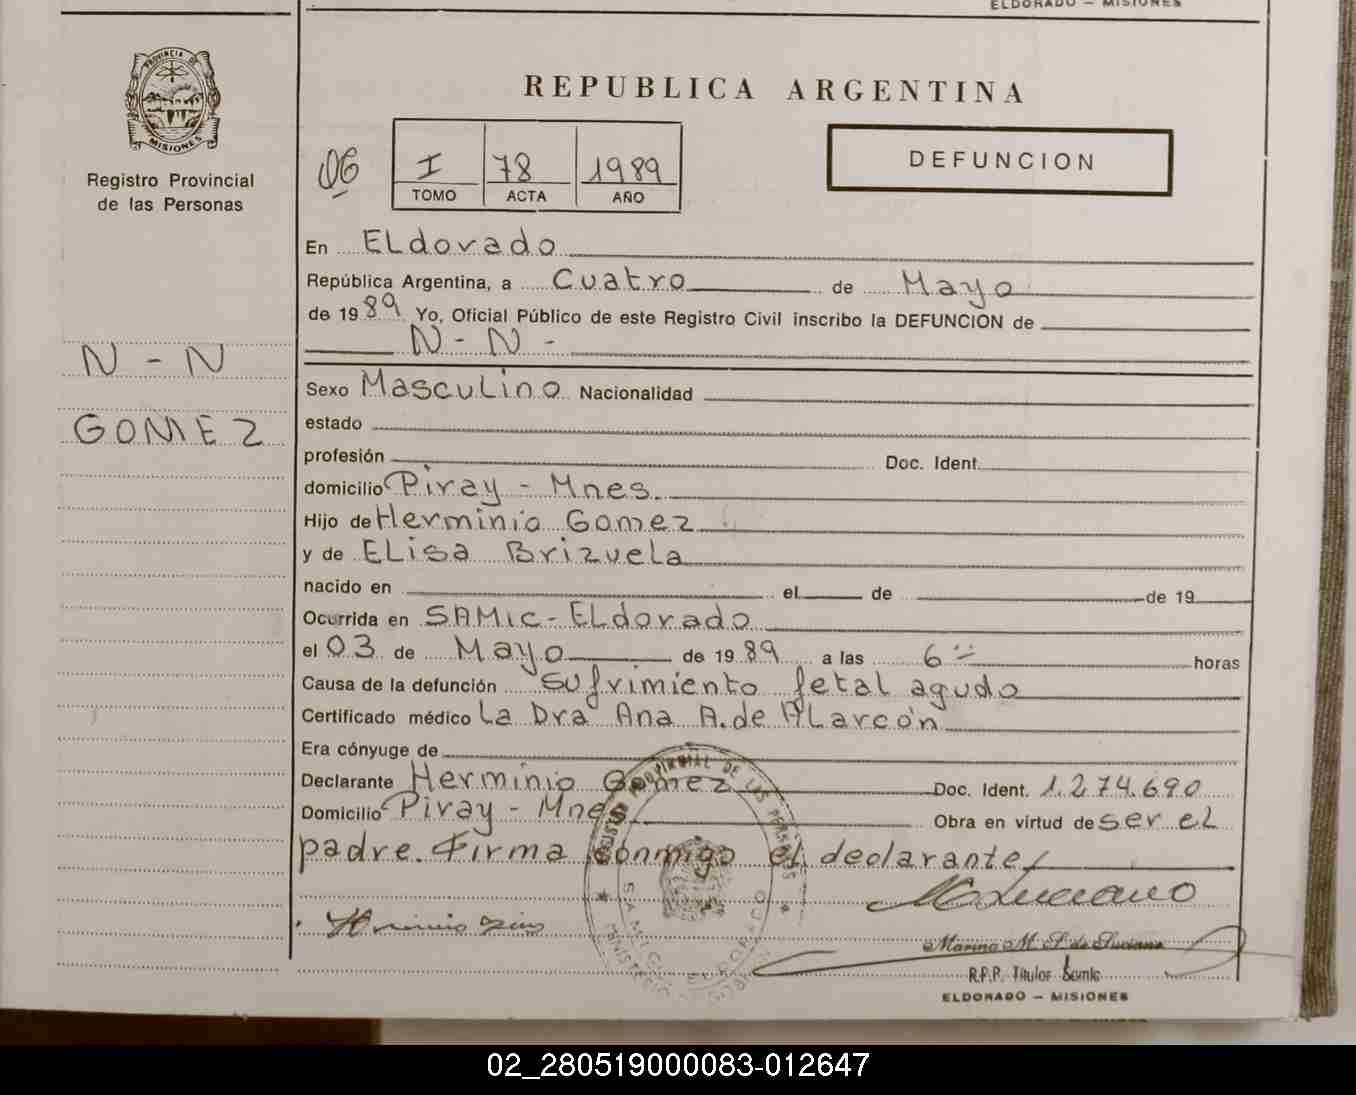 ELDORADO – MISIONES
PROVINCIA DE
MISIONES
Registro Provincial
de las Personas
REPUBLICA ARGENTINA
DEFUNCION
06 I 78 1989
TOMO ACTA AÑO
En ELdorado
República Argentina, a Cuatro de Mayo
de 1989 Yo, Oficial Público de este Registro Civil inscribo la DEFUNCION de
N - N -
N - N
GOMEZ
Sexo Masculino Nacionalidad
estado
profesión Doc. Ident.
domicilio Piray - Mnes.
Hijo de Herminio Gomez
y de ELisa Brizuela
nacido en el de de 19
Ocurrida en SAMIC - ELdorado
el 03 de Mayo de 1989 a las 6 horas
Causa de la defunción sufrimiento fetal agudo
Certificado médico La Dra Ana A. de ALarcón
Era cónyuge de
Declarante Herminio Gomez Doc. Ident. 1.274.690
Domicilio Piray - Mnes Obra en virtud de ser eL
padre. Firma conmigo el declarante
Marina M. S. de Luciano
R.P.P. Titular Samic
ELDORADO – MISIONES
PROVINCIAL DE LAS PERSONAS
SAMIC ELDORADO
02_280519000083-012647